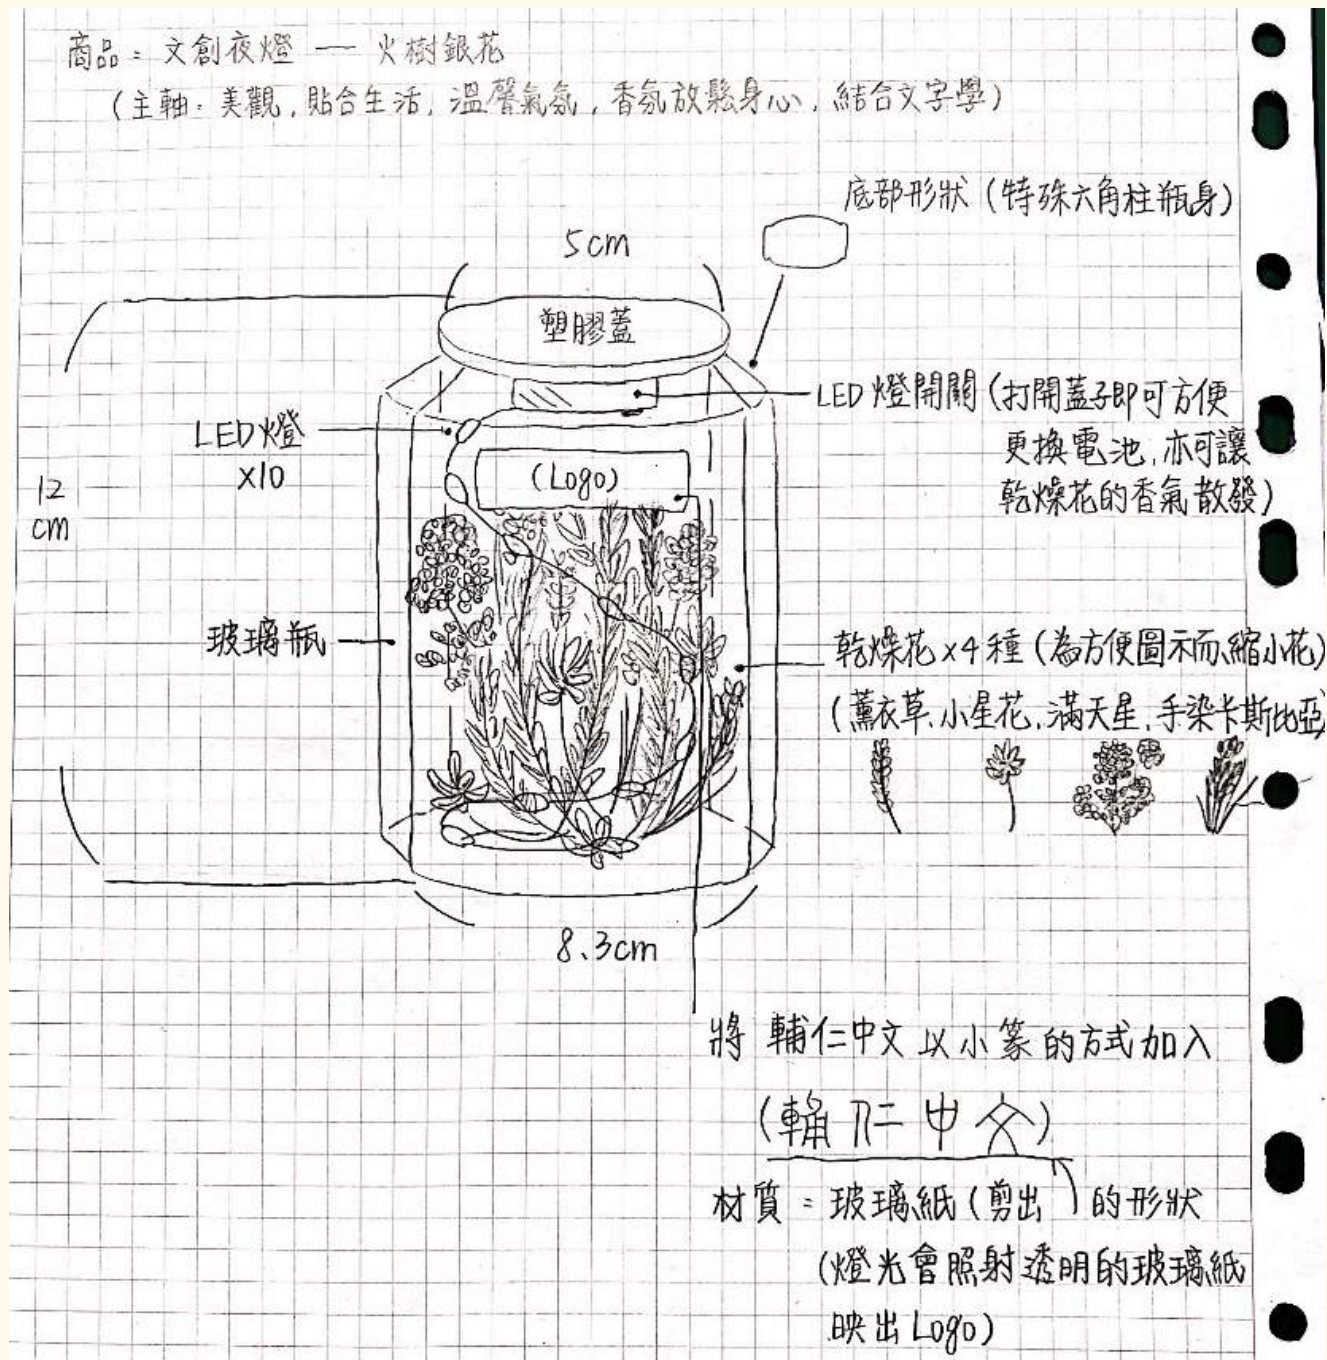 商品：文創夜燈 — 火樹銀花
(主軸：美觀，貼合生活，溫馨氣氛，香氛放鬆身心，結合文字學)
底部形狀 (特殊六角柱瓶身)
5cm
塑膠蓋
LED燈開關 (打開蓋子即可方便
更換電池，亦可讓
乾燥花的香氣散發)
LED燈
X10
(Logo)
12
cm
玻璃瓶
乾燥花x4種 (為方便圖示而縮小花)
(薰衣草、小星花、滿天星、手染卡斯比亞)
8.3cm
將 輔仁中文 以小篆的方式加入
(輔仁中文)
材質：玻璃紙 (剪出 的形狀
(燈光會照射透明的玻璃紙
映出Logo)